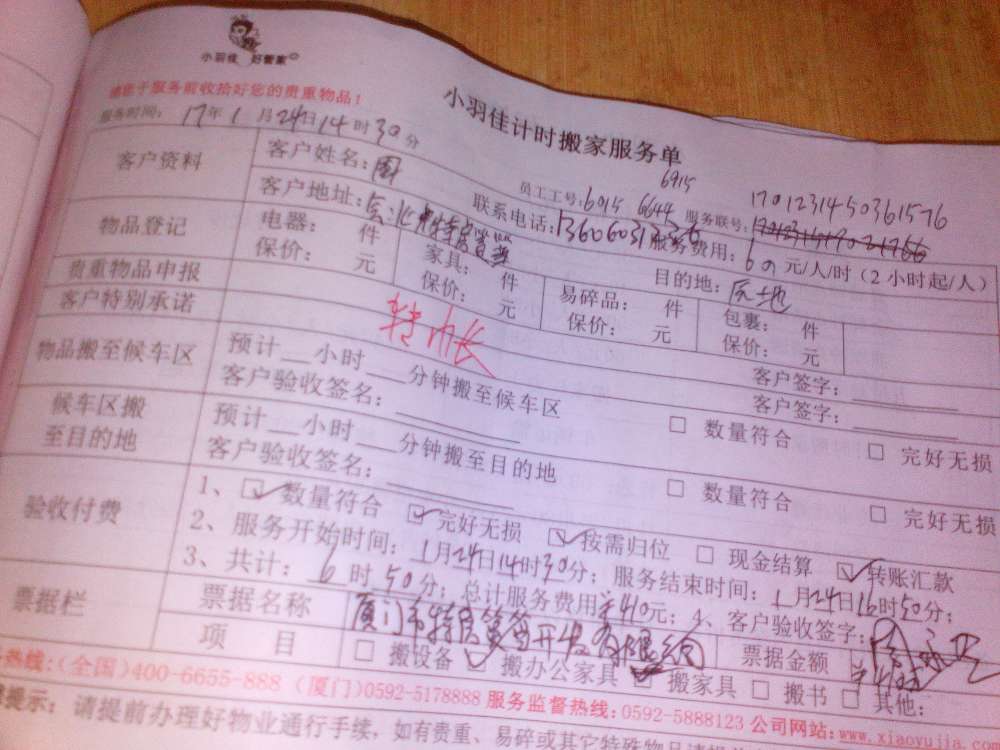 小羽佳 好管家
请您于服务前收拾好您的贵重物品！
小羽佳计时搬家服务单
服务时间： 17年 1 月 24日 14 时 30 分
6915
员工工号: 6015 6644 服务联号: 1701231450361576
客户资料 客户姓名: 周 联系电话: 服务费用: 60 元/人/时（2 小时起/人）
客户地址: 目的地: 原地
物品登记 电器: 件 家具: 件 易碎品: 件 包裹: 件
保价: 元 保价: 元 保价: 元 保价: 元
贵重物品申报 客户签字:
客户特别承诺 客户签字:
物品搬至候车区 预计 小时 分钟搬至候车区 □ 数量符合 □ 完好无损
客户验收签名:
候车区搬至目的地 预计 小时 分钟搬至目的地 □ 数量符合 □ 完好无损
客户验收签名:
验收付费 1、☑ 数量符合 ☑ 完好无损 ☑ 按需归位 □ 现金结算 ☑ 转账汇款
2、服务开始时间: 1月24日14时30分; 服务结束时间: 1月24日16时50分;
3、共计: 6 时 50分; 总计服务费用¥410元; 4、客户验收签字:
票据栏 票据名称 票据金额
项 目 □ 搬设备 ☑ 搬办公家具 □ 搬家具 □ 搬书 □ 其他:
热线:(全国)400-6655-888 (厦门)0592-5178888 服务监督热线: 0592-5888123 公司网站: www.xiaoyujia.com
提示: 请提前办理好物业通行手续，如有贵重、易碎或其它特殊物品请提